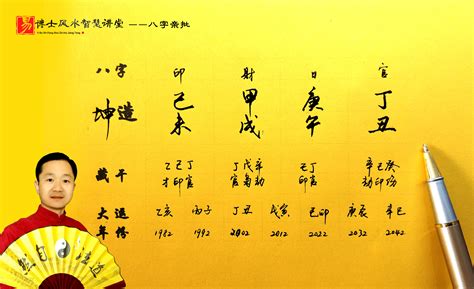 易 博士风水智慧讲堂 ——八字亲批
八字 印 財 日 官
坤造 己未 甲戌 庚午 丁丑
藏干 乙己丁 丁戊辛 己丁 辛己癸
才印官 官枭劫 印官 劫印伤
大運 乙亥 丙子 丁丑 戊寅 己卯 庚辰 辛巳
年份 1982 1992 2002 2012 2022 2032 2042
然自法道